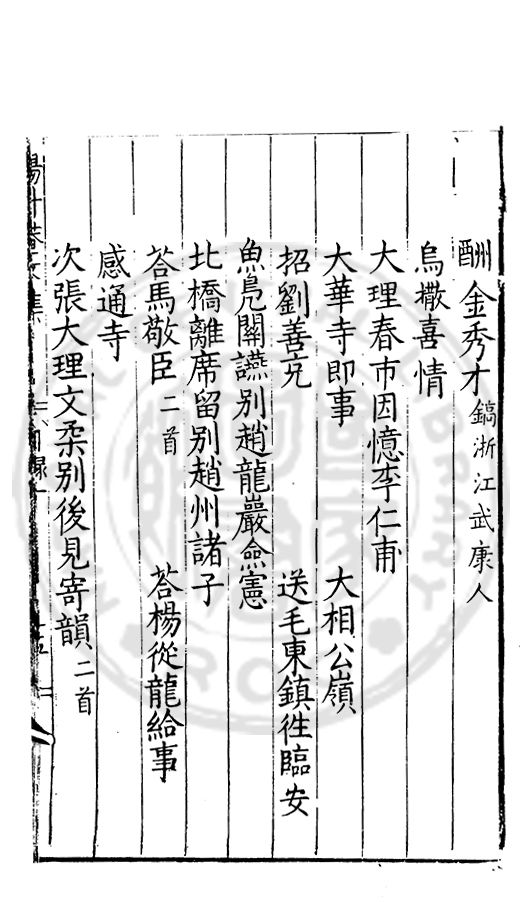 酬金秀才鎬浙江武康人
烏撒喜晴
大理春市因憶李仁甫
大華寺即事　大相公嶺
招劉善充　送毛東鎮徃臨安
魚鳧關讌别趙龍巖僉憲
北橋離席留别趙州諸子
荅馬敬臣二首　荅楊從龍給事
感通寺
次張大理文柔别後見寄韻二首